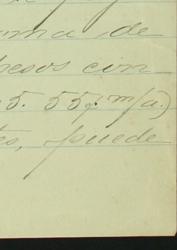 ma de
pesos con
5.55 m/a.)
es, puede